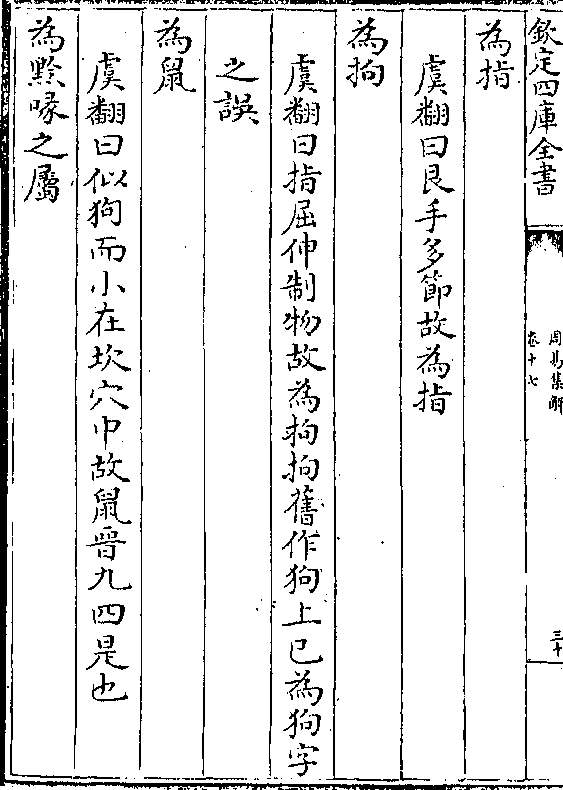 欽定四庫全書
周易集解
卷十七
三十
為指
虞翻曰艮手多節故為指
為拘
虞翻曰指屈伸制物故為拘拘舊作狗上已為狗字
之誤
為鼠
虞翻曰似狗而小在坎穴中故鼠晉九四是也
為黔喙之屬